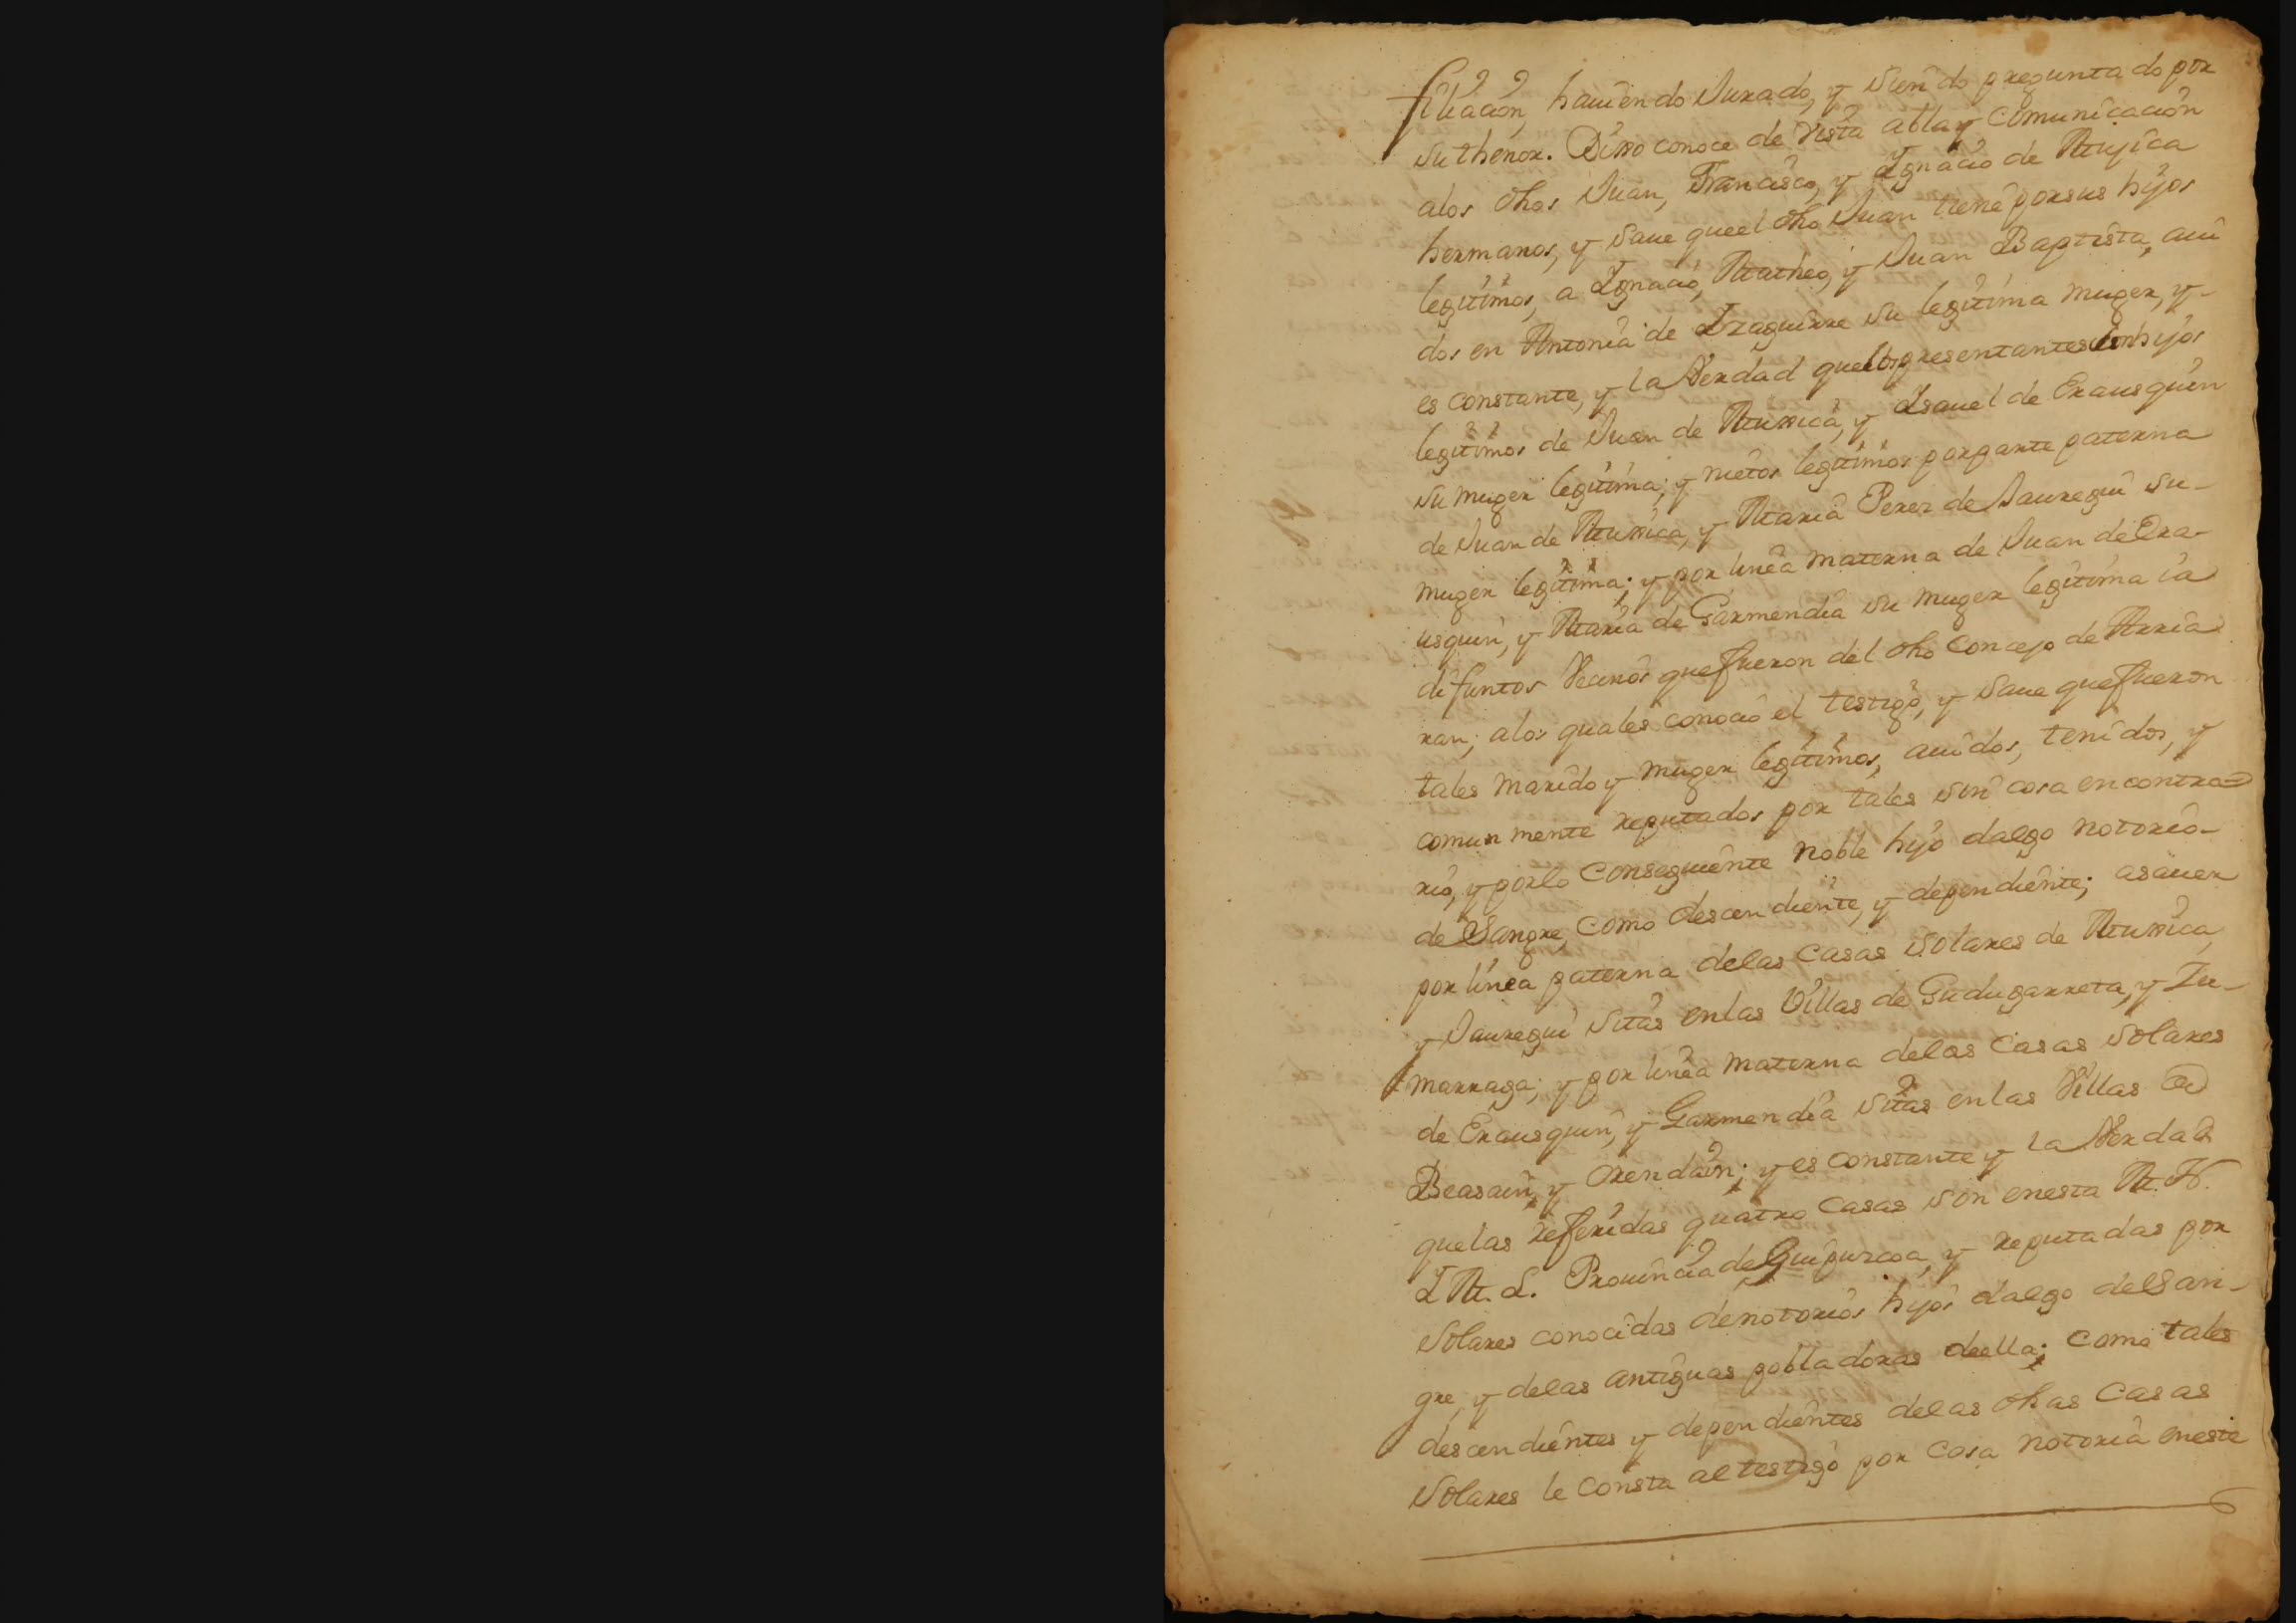 filiacion, hauiendo Jurado, y siendo preguntado por
su thenor. Dixo conoce de vista abla y comunicacion
alos dhos Juan, Francisco, y Ygnacio de Mujica
hermanos, y saue queel dho Juan tiene porsus hijos
legitimos, a Ygnacio, Matheo, y Juan Baptista, aui
dos en Antonia de Yzaguirre su legitima muger, y
es constante, y la Verdad quelos presentantes son hijos
legitimos de Juan de Muxica, y Ysauel de Erausquin
su muger legitima; y nietos legitimos porparte paterna
de Juan de Muxica, y Maria Perez de Jauregui su
muger legitima; y por linea materna de Juan de Era-
usquin, y Maria de Garmendia su muger legitima ia
difuntos Vecinos quefueron del dho Concejo de Arria
ran; alos quales conocio el testigo, y saue quefueron
tales marido y muger legitimos, auidos, tenidos, y
comun mente reputados por tales sin cosa encontra=
rio, y porlo Conseguiente noble hijo dalgo notorio
de Sangre, como descendiente, y dependiente; asauer
por linea paterna delas Casas solares de Muxica,
y Jauregui sitas enlas Villas de Gudugarreta, y Zu-
marraga; y por linea materna delas Casas solares
de Erausquin, y Garmendia sitas enlas Villas de
Beasain, y Orendain; y es constante y la Verdad
quelas referidas quatro Casas son enesta M. N.
Y M. L. Prouincia de Guipuzcoa, y reputadas por
Solares conocidas denotorios hijos dalgo deSan-
gre, y delas antiguas pobladoras deella; como tales
descendientes y dependientes delas dhas Casas
Solares le Consta al testigo por cosa notoria eneste